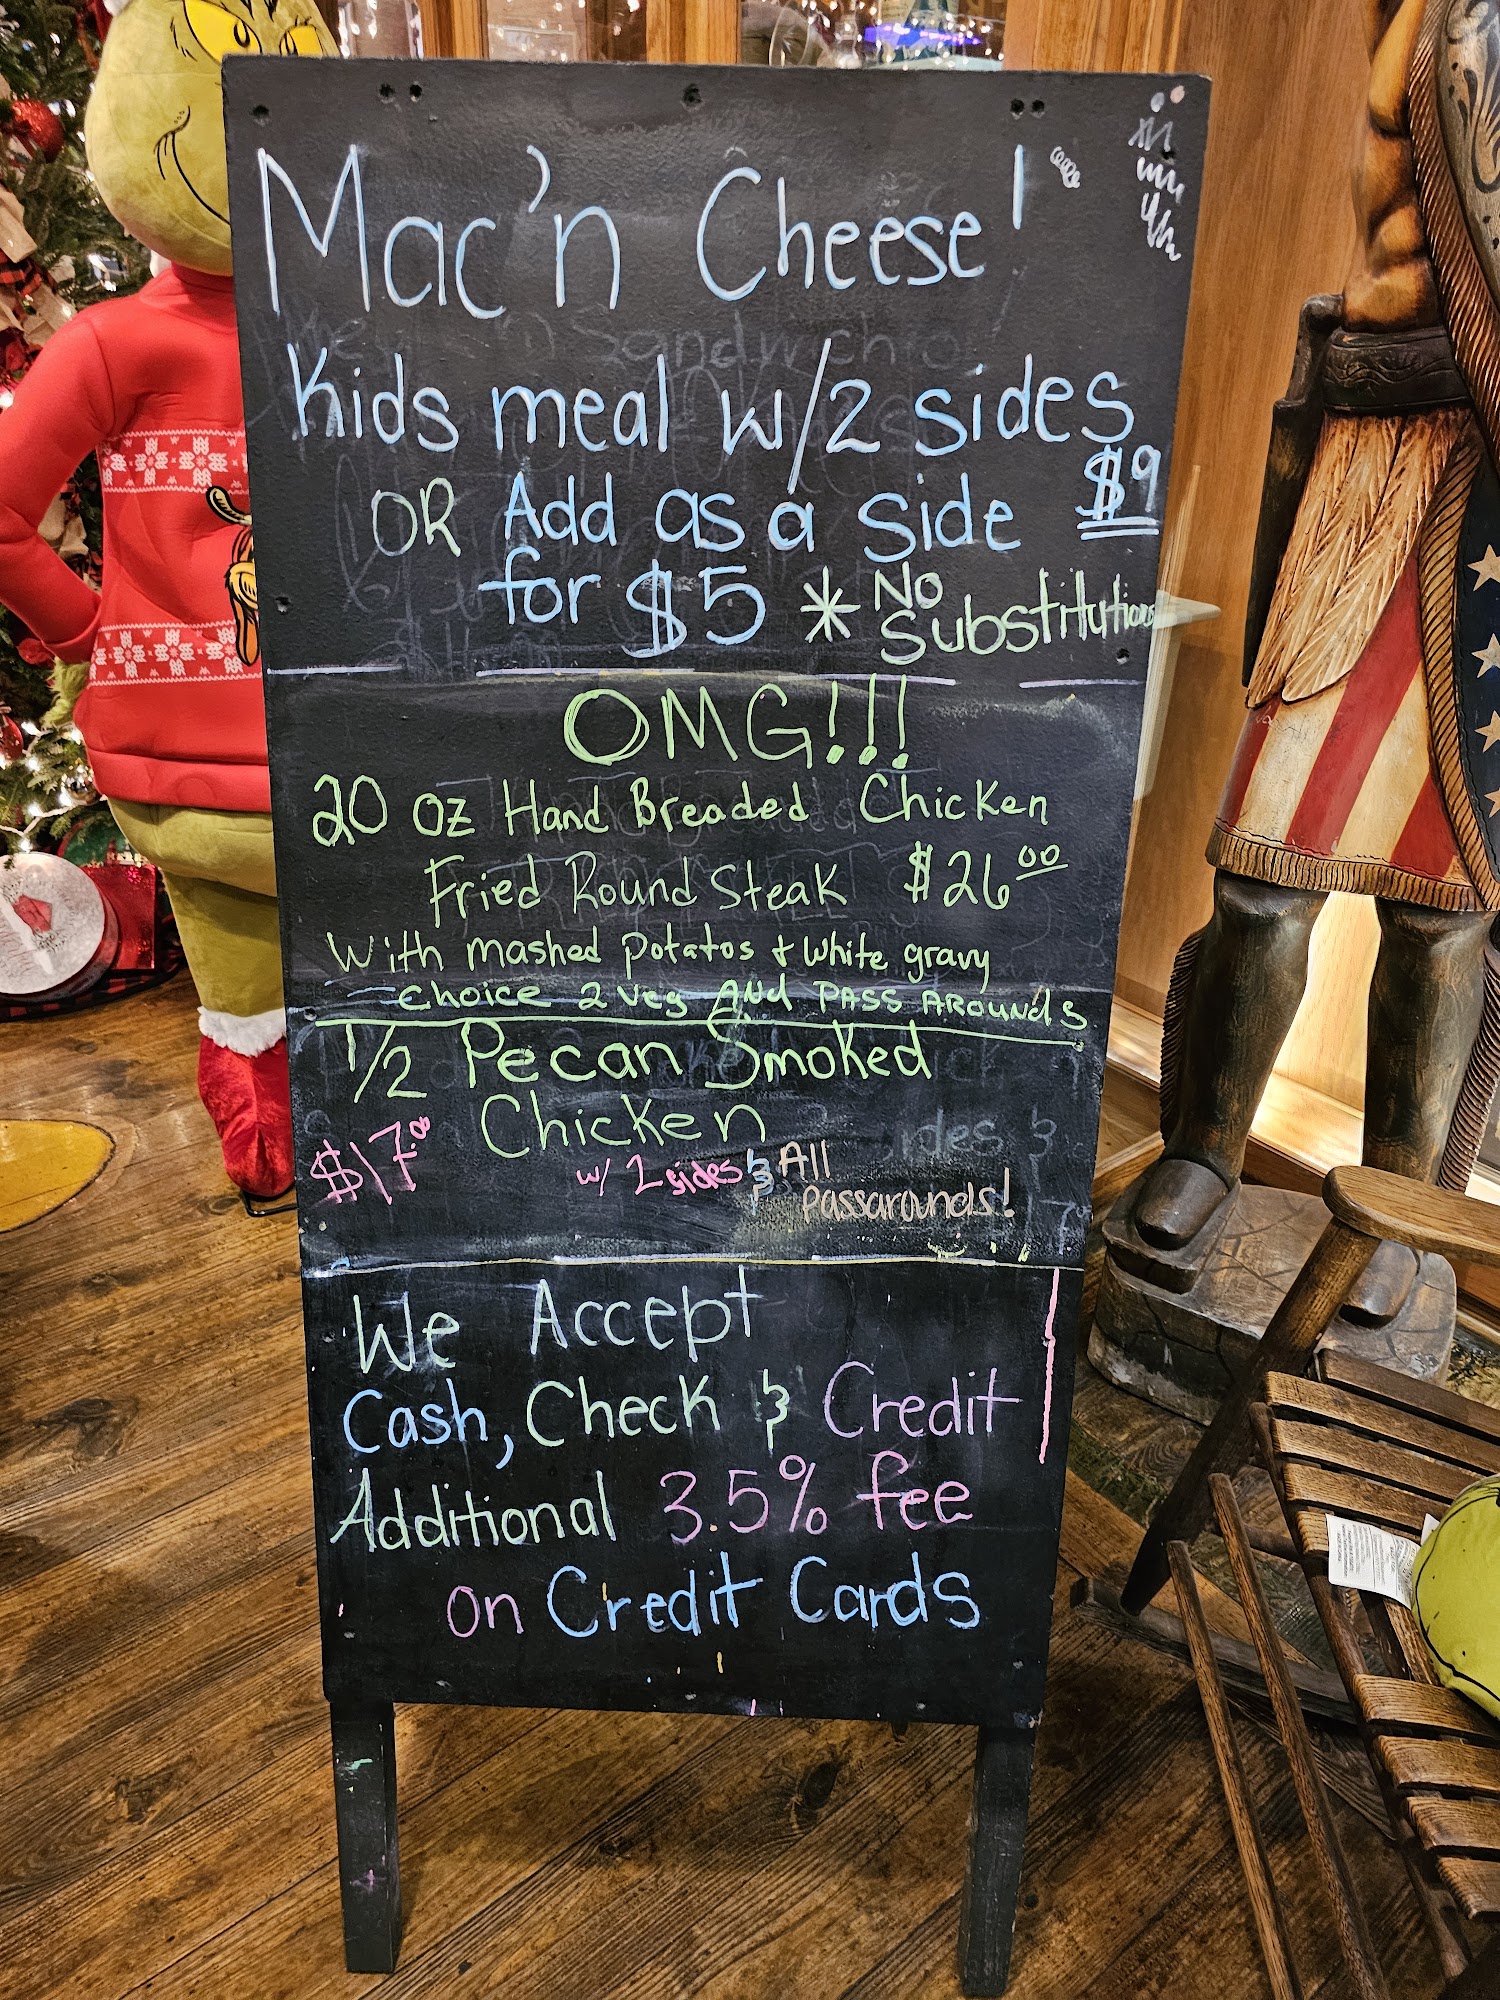 Mac'n Cheese!
Kids meal w/2 sides
$9
OR Add as a side
for $5 * No Substitutions
OMG!!!
20 oz Hand Breaded Chicken
Fried Round Steak $26⁰⁰
With mashed potatos + white gravy
choice 2 veg And PASS AROUNDS
1/2 Pecan Smoked
Chicken
$17.⁰⁰ w/ 2 sides & All
passarounds!
We Accept
Cash, Check & Credit
Additional 3.5% fee
on Credit Cards